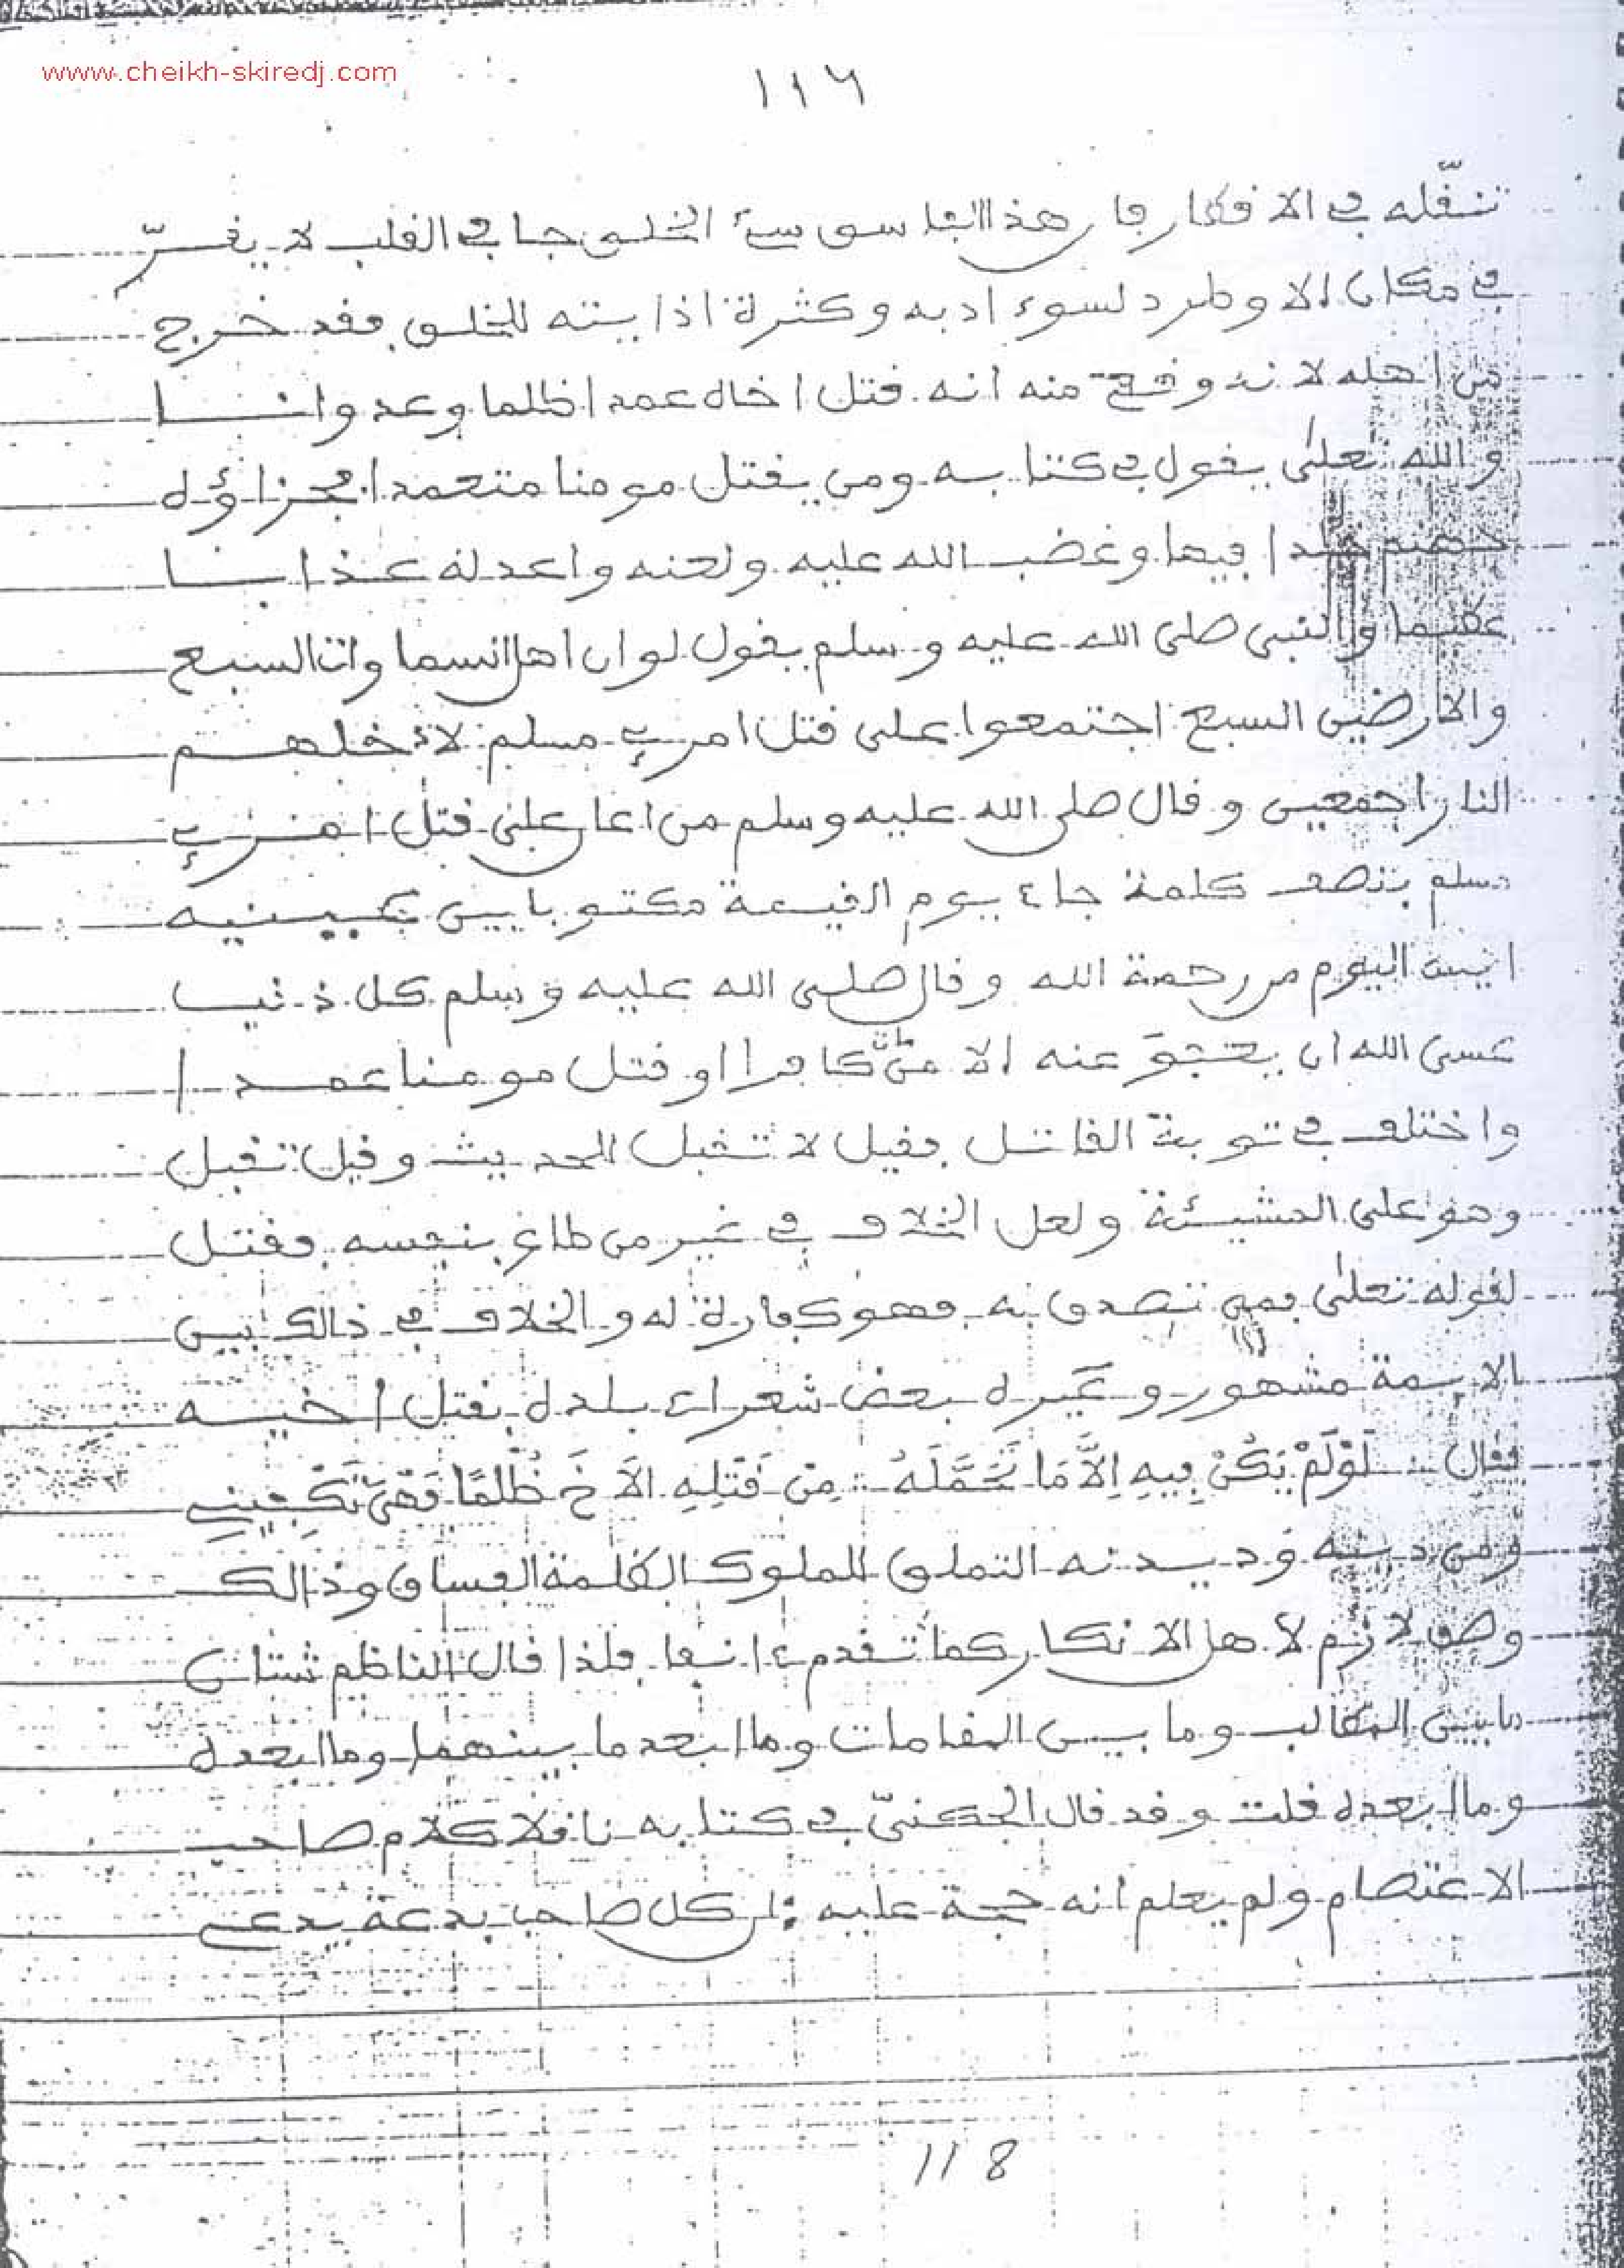 www.cheikh-skiredj.com
١١٦
تنقّله في الافكار فان هذا الفاسق سيء الخلق جا في القلب لا يقرّ
في مكان الا وطرد لسوء ادبه وكثرة اذايته للخلق فقد خرج
من اهله لانه وقع منه انه قتل اخاه عمدا ظلما وعدوانا
والله تعلى يقول في كتابه ومن يقتل مومنا متعمدا فجزاؤه
جهنم خلدا فيها وغضب الله عليه ولعنه واعد له عذابا
عظيما والنبي صلى الله عليه وسلم يقول لو ان اهل السماوات السبع
والارضين السبع اجتمعوا على قتل امرئ مسلم لادخلهم
النار اجمعين وقال صلى الله عليه وسلم من اعان على قتل امرئ
مسلم بنصف كلمة جاء يوم القيمة مكتوبا بين عينيه
ايس اليوم من رحمة الله وقال صلى الله عليه وسلم كل ذنب
عسى الله ان يعفو عنه الا من مات كافرا او قتل مومنا عمدا
واختلف في توبة القاتل فقيل لا تقبل للحديث وقيل تقبل
وهو على المشيئة ولعل الخلاف في غير من طاع بنفسه فقتل
لقوله تعلى فمن تصدق به فهو كفارة له والخلاف في ذالك بين
الايمة مشهور وعيره بعض شعراء بلده بقتل اخيه
فقال لَوْ لَمْ يَكُنْ فِيهِ إِلاَّ مَا تَحَمَّلَهُ : مِنْ قَتْلِهِ الاَخَ ظُلْمًا فَهْيَ تَكْفِينِي
ومن دينه وديدنه التملق للملوك الظلمة الفساق وذالك
وصف لازم لاهل الانكار كما تقدم ءانفا فلذا قال الناظم شتان
ما بين المطالب وما بين المقامات وما ابعد ما بينهما وما ابعده
وما ابعده قلت وقد قال الجكنيّ في كتابه ناقلا كلام صاحب
الاعتصام ولم يعلم انه حجة عليه : ان كل صاحب بدعة يدعى
118